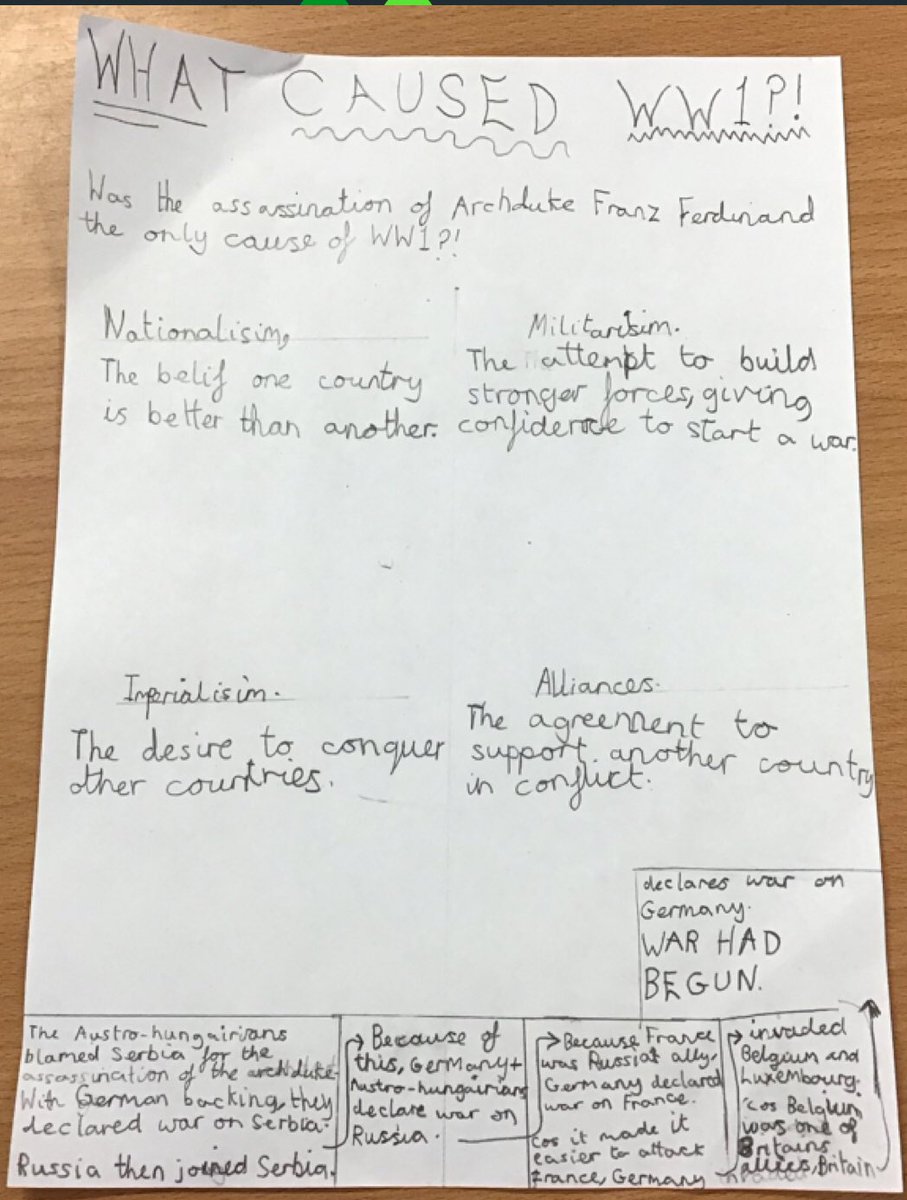 WHAT CAUSED WW1?!
Was the assassination of Archduke Franz Ferdinand
the only cause of WW1?!
Nationalisim,
The belif one country
is better than another.
Militarisim.
The attempt to build
stronger forces, giving
confidence to start a war.
Imperialisim.
The desire to conquer
other countries.
Alliances.
The agreement to
support another country
in conflict.
The Austro-hungairians
blamed Serbia for the
assassination of the archduke.
With German backing, they
declared war on Serbia.
Russia then joined Serbia.
Because of
this, Germany +
Austro-hungairians
declare war on
Russia.
Because France
was Russias ally,
Germany declared
war on France.
cos it made it
easier to attack
France, Germany
invaded
Belgium and
Luxembourg.
'cos Belgium
was one of
Britains
allies, Britain
declares war on
Germany.
WAR HAD
BEGUN.